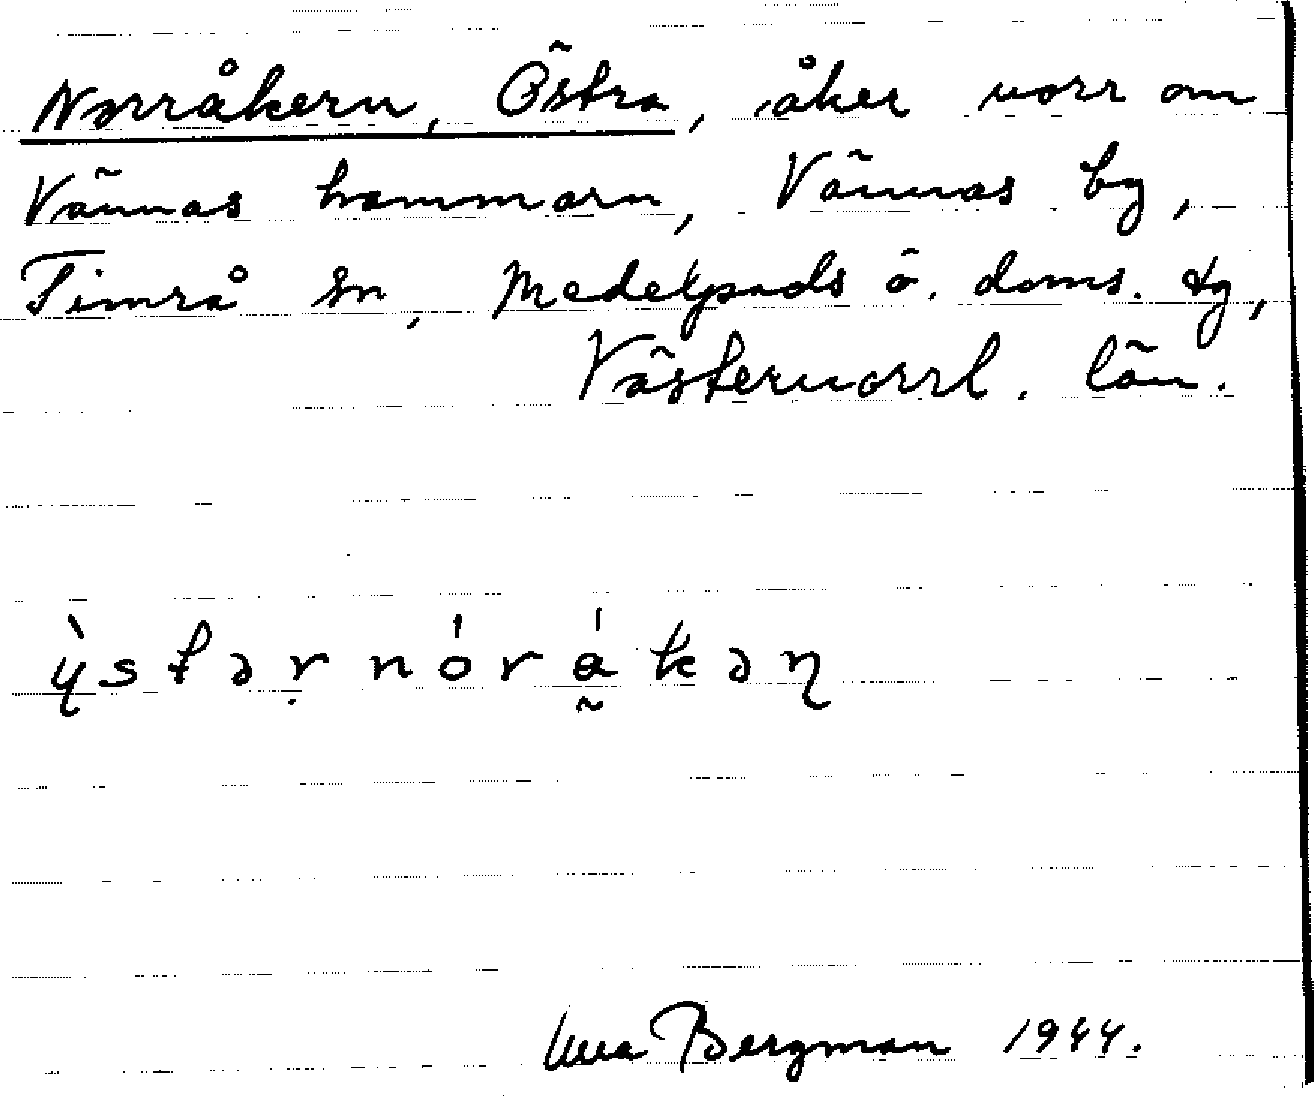 Norråkern, Östra, åker norr om
Vännas hammarn, Vännas by,
Timrå sn, Medelpads ö. doms. tg,
Västernorrl. län.
ỳstəṛ nórá̰kəɳ
Bergman 1944.